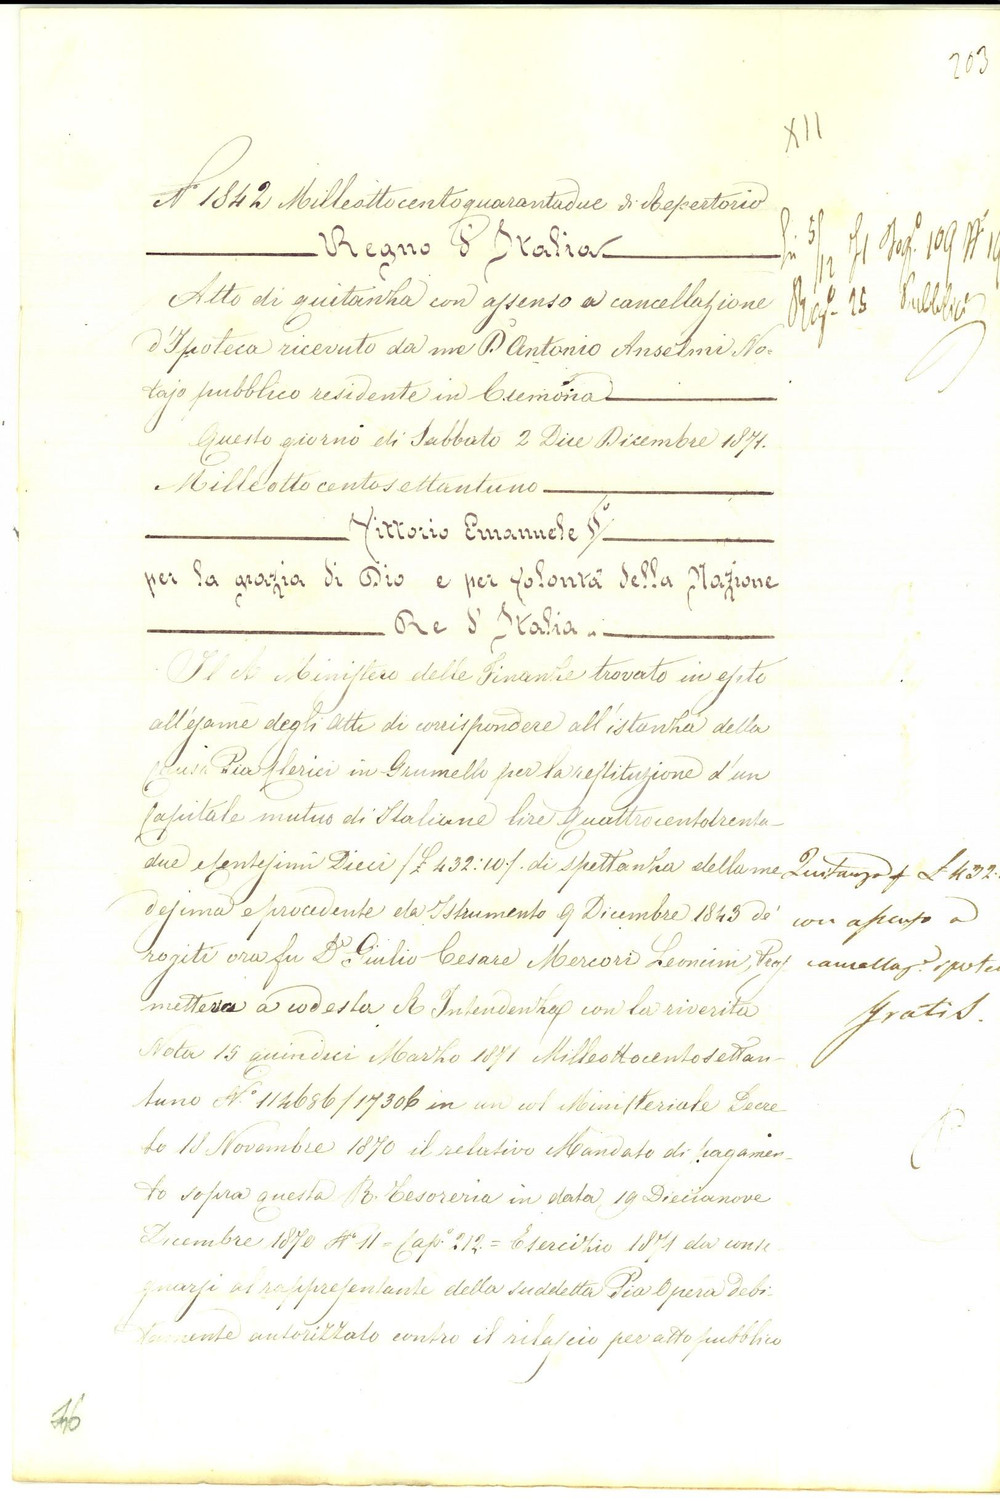 203
XII
N.° 1842 Milleottocentoquarantadue di Repertorio
Regno d'Italia
Atto di quitanza con assenso a cancellazione
d'Ipoteca ricevuto da me Dr Antonio Anselmi No-
tajo pubblico residente in Cremona
Questo giorno di Sabbato 2 Due Dicembre 1871.
Milleottocentosettantuno
Vittorio Emanuele IIº
per la grazia di Dio e per volontà della Nazione
Re d'Italia
Il R Ministero delle Finanze trovato in esito
all'esame degli Atti di corrispondere all'istanza della
Causa Pia Clerici in Grumello per la restituzione d'un
Capitale mutuo di Italiane lire Quattrocentotrenta-
due e Centesimi Dieci /£ 432:10/. di spettanza della me
desima e procedente da Istrumento 9 Dicembre 1843 de'
rogiti ora fu Dr Giulio Cesare Mercori Leoncini,
metteva a codesta R Intendenza con la riverita
Nota 15 quindici Marzo 1871 Milleottocentosettan-
tuno N.° 114686/17306 in un col Ministeriale Decre-
to 18 Novembre 1870 il relativo Mandato di pagamen-
to sopra questa R. Tesoreria in data 19 Diecianove
Dicembre 1870 N° 11 = Cap.° 212 = Esercizio 1871 da conse
gnarsi al rappresentante della suddetta Pia Opera debi-
tamente autorizzato contro il rilascio per atto pubblico
5/12 71 109 N° 19
25 Pubblici
Quitanza £ 432.
con assenso a
cancellaz.e ipoteca
Gratis.